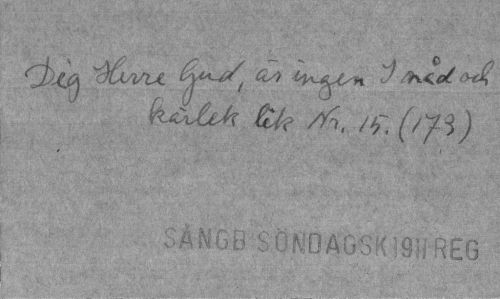 Dig Herre Gud, är ingen I nåd och
kärlek lik Nr. 15. (173)
SÅNGB SÖNDAGSK 1911 REG